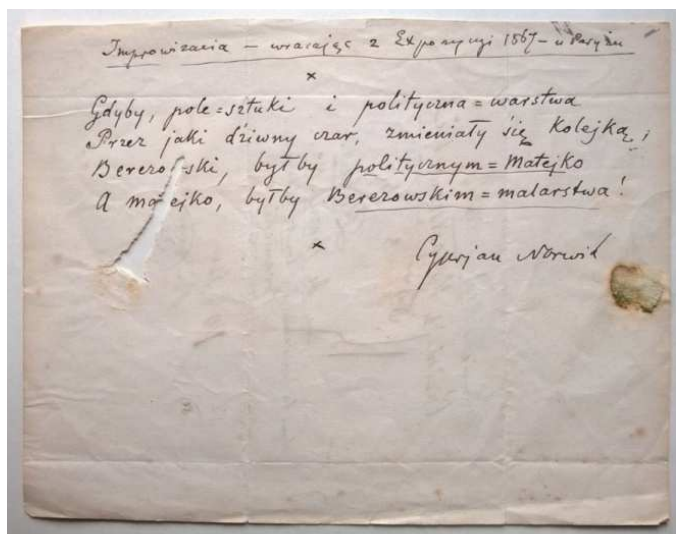 Improwizacia — wracając z Expozycyi 1867 — w Paryżu
×
Gdyby, pole=sztuki i polityczna=warstwa
Przez jaki dziwny czar, zmieniały się kolejką,
Berezowski, byłby politycznym=Matejko
A matejko, byłby Berezowskim=malarstwa!
×
Cyprjan Norwid